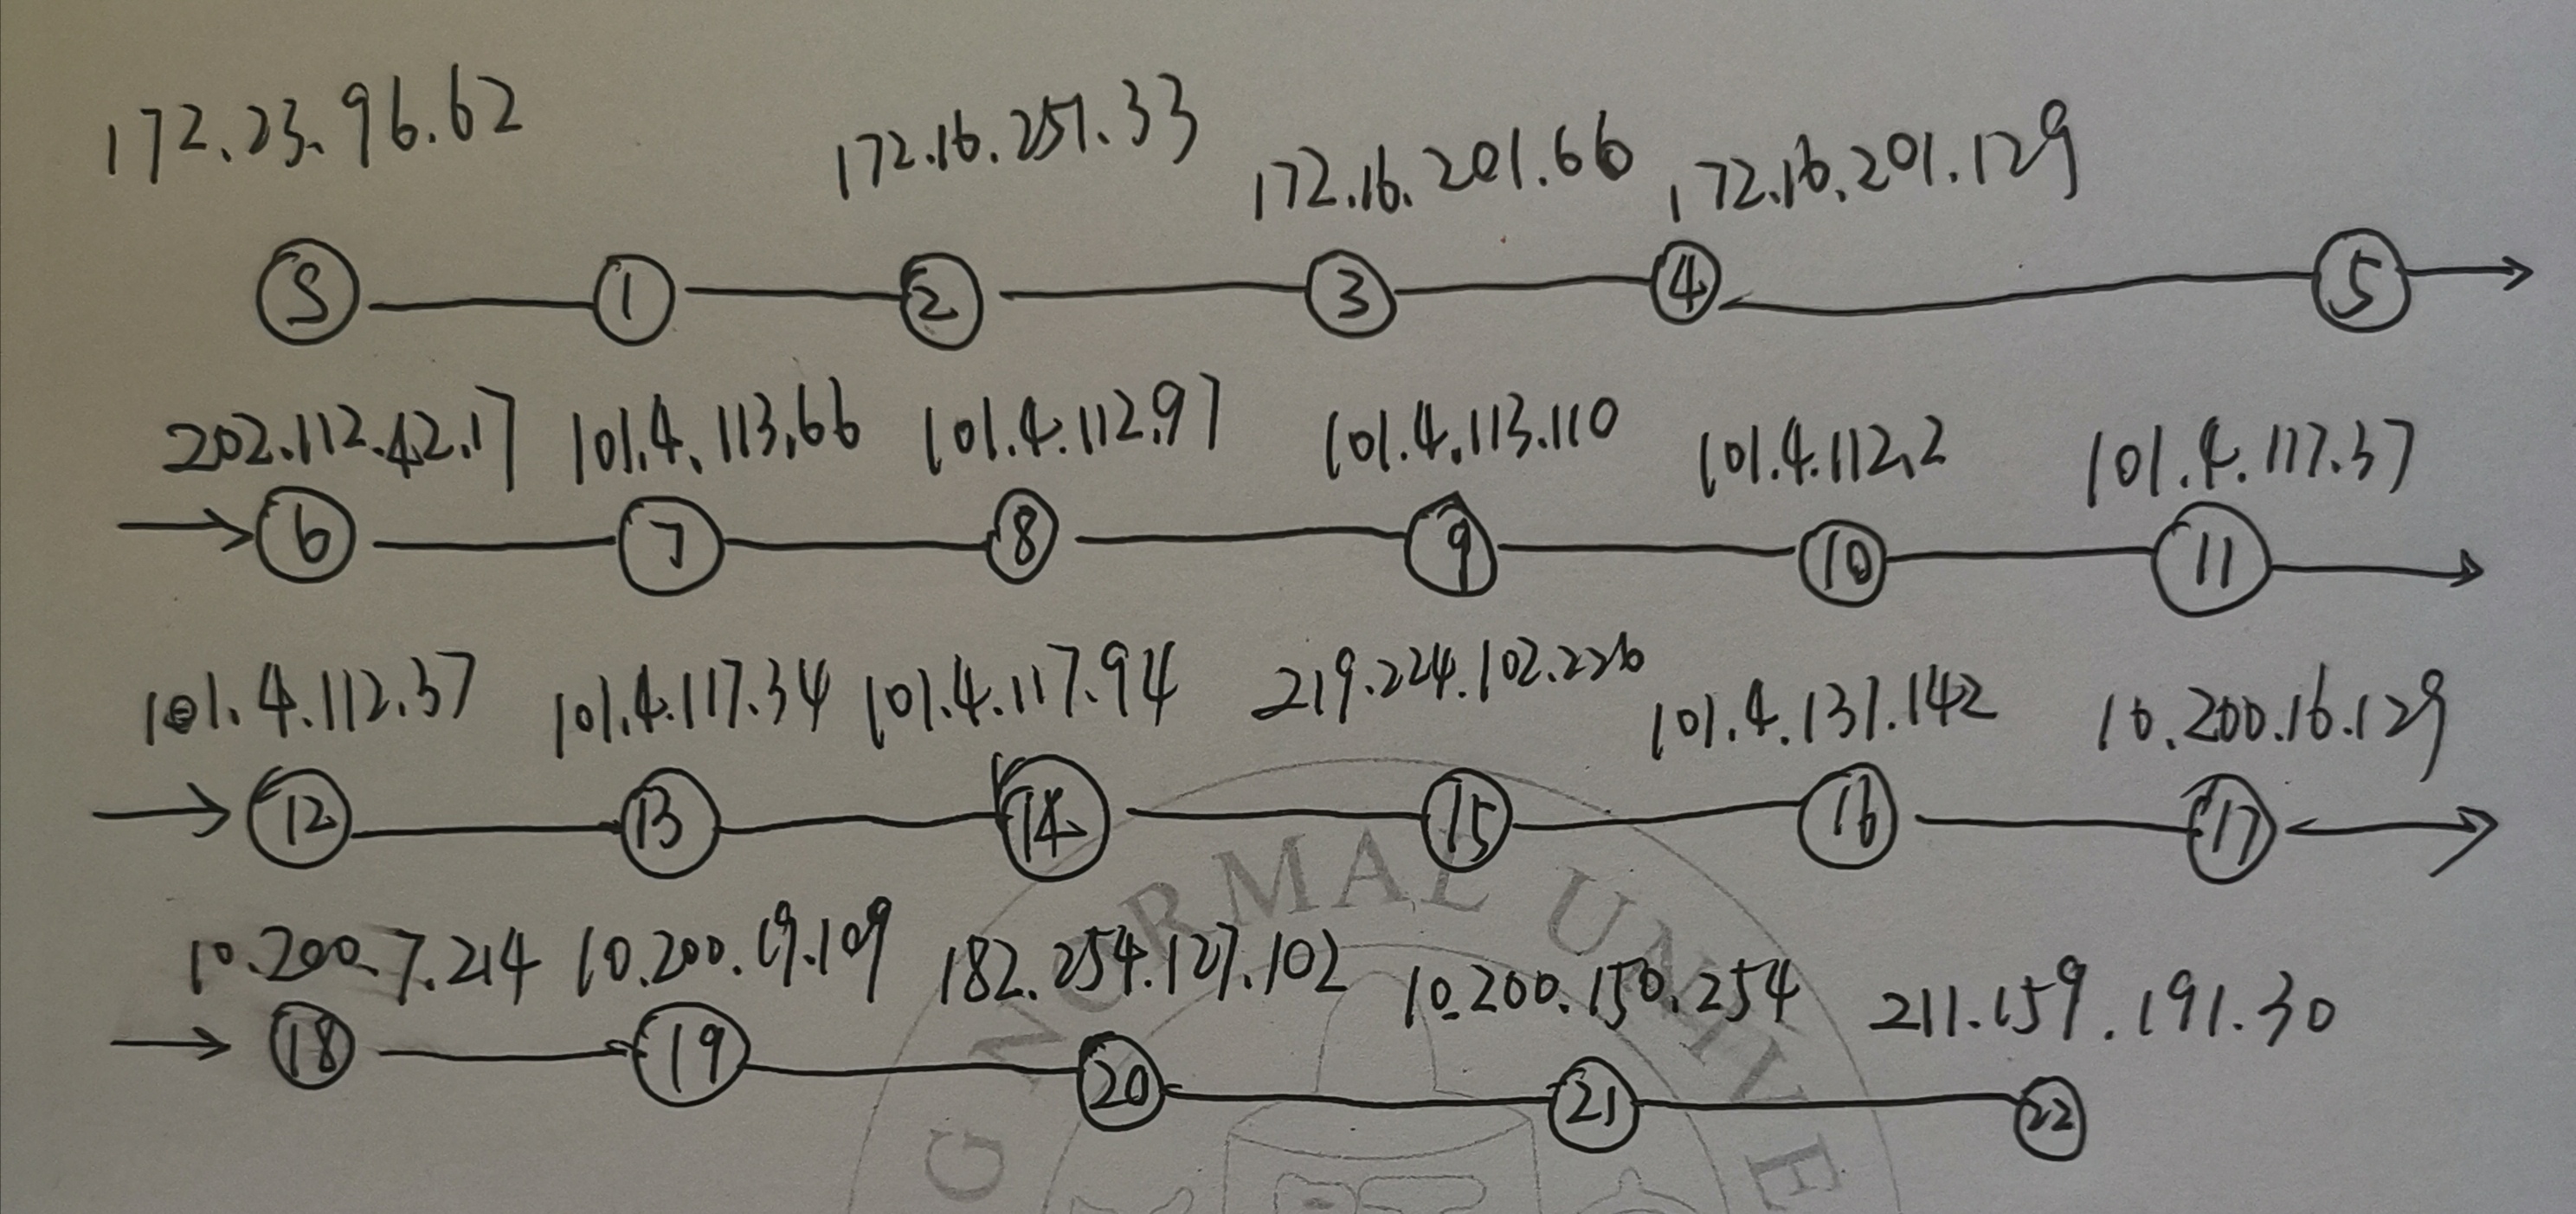 172.23.96.62 172.16.251.33 172.16.201.66 172.16.201.129
S 1 2 3 4 5
202.112.42.17 101.4.113.66 101.4.112.97 101.4.113.110 101.4.112.2 101.4.117.37
6 7 8 9 10 11
101.4.112.37 101.4.117.34 101.4.117.94 219.224.102.226 101.4.131.142 10.200.16.129
12 13 14 15 16 17
10.200.7.214 10.200.19.109 182.254.127.102 10.200.150.254 211.159.191.30
18 19 20 21 22
G NORMAL UNIVE